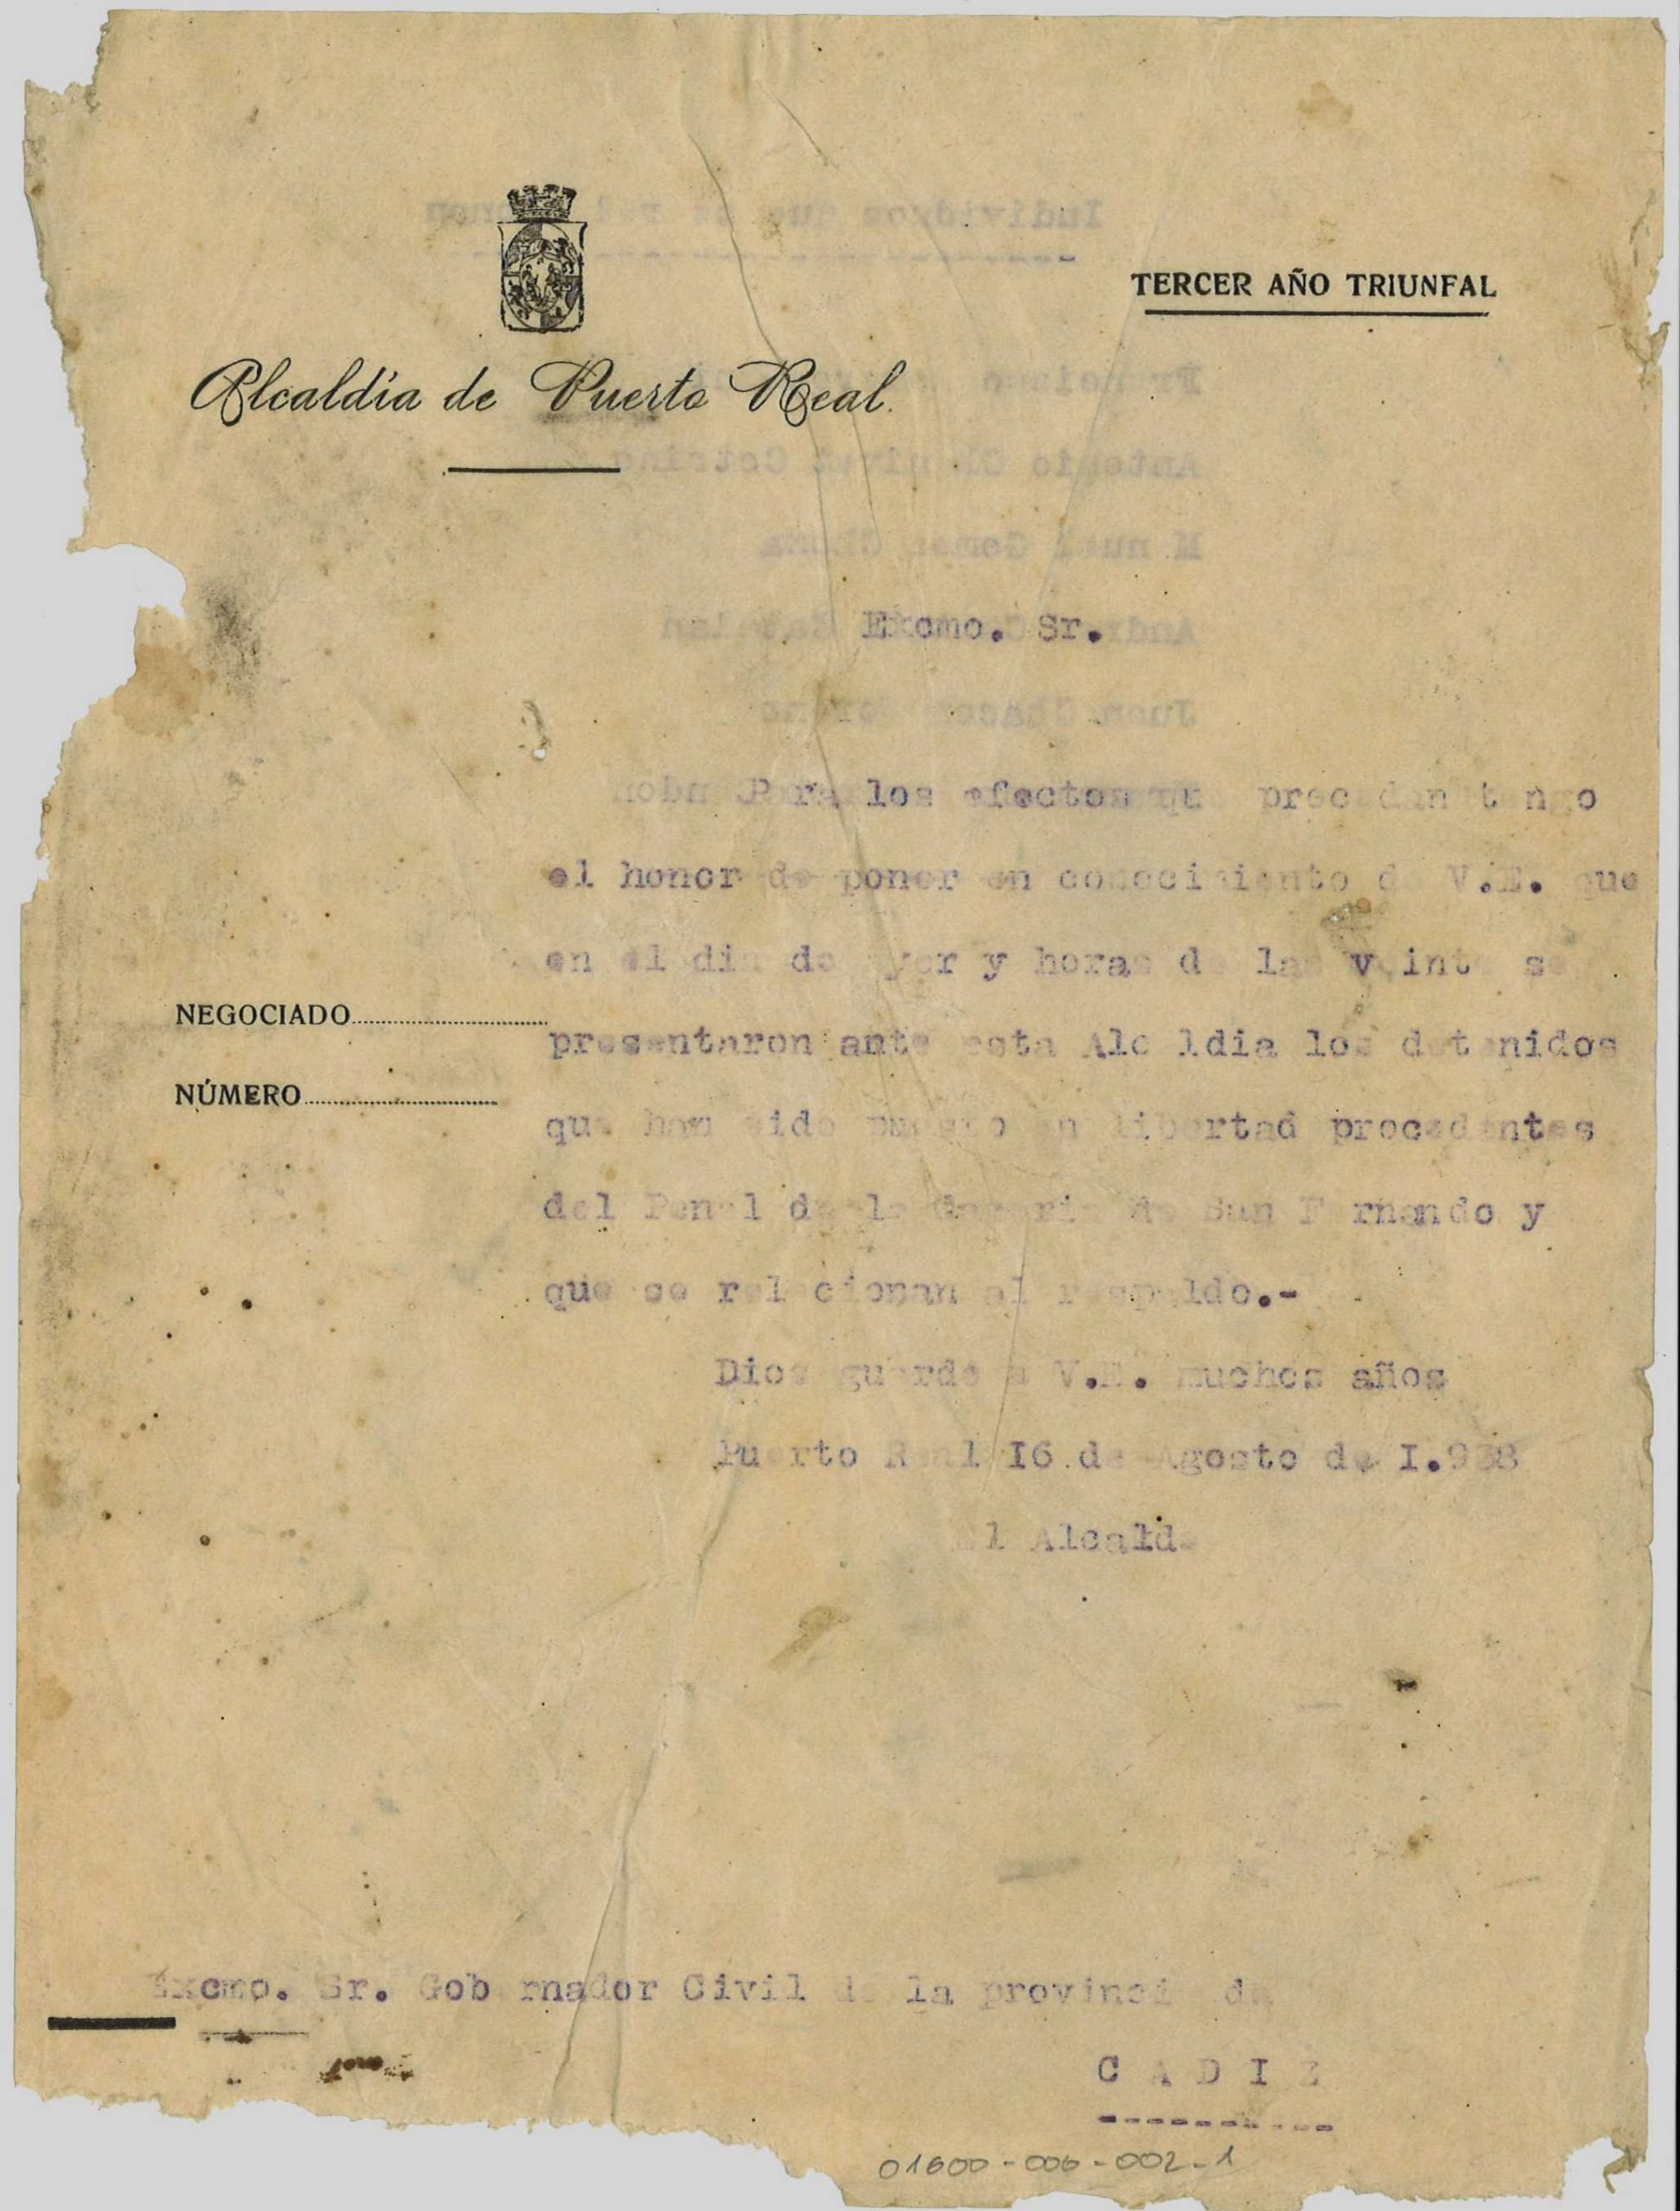 TERCER AÑO TRIUNFAL
Alcaldía de Puerto Real.
Excmo. Sr.
Para los efectos que procedan tengo
el honor de poner en conocimiento de V.E. que
en el dia de ayer y horas de las veinte se
NEGOCIADO
presentaron ante esta Alcaldia los detenidos
NÚMERO
que han sido puesto en libertad procedentes
del Penal de la de San Fernando y
que se relacionan al respaldo.-
Dios guarde a V.E. muchos años
Puerto Real I6 de Agosto de I.938
El Alcalde
Excmo. Sr. Gobernador Civil de la provincia de
C A D I Z
01600-006-002-1